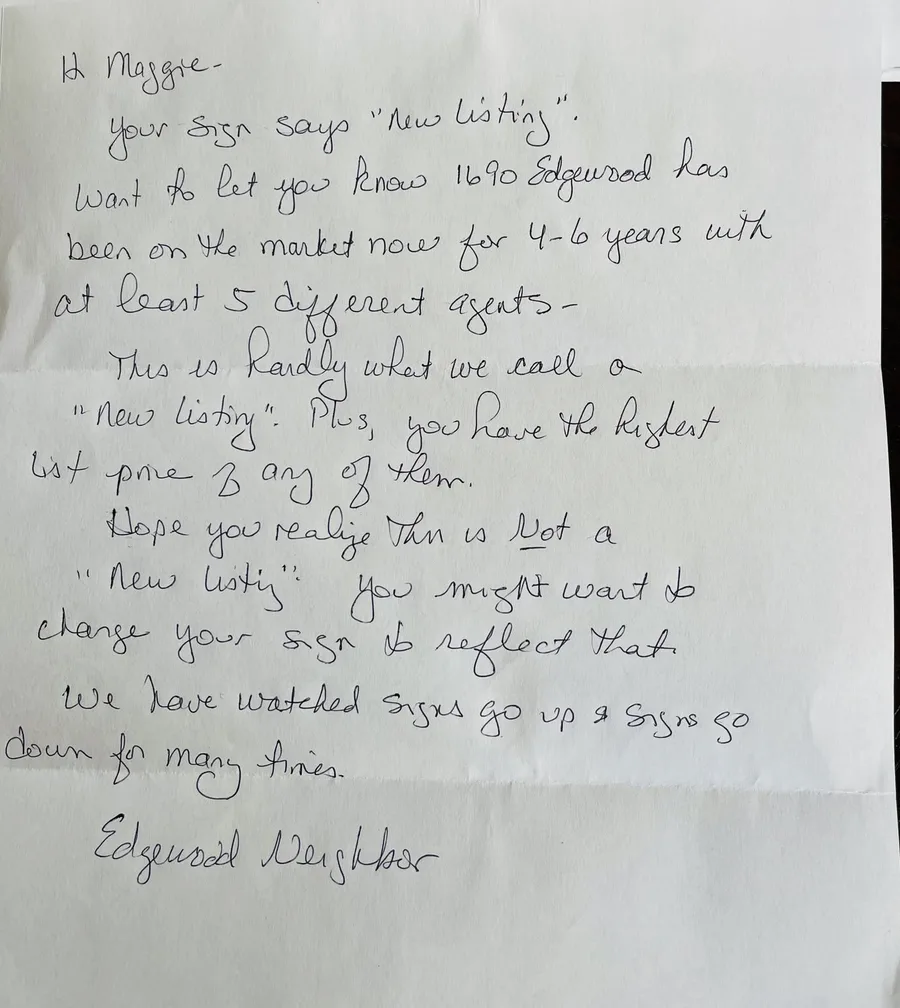 Hi Maggie-
Your sign says "New listing".
Want to let you know 1690 Edgewood has
been on the market now for 4-6 years with
at least 5 different agents-
This is hardly what we call a
"New listing". Plus, you have the highest
list price of any of them.
Hope you realize this is Not a
"New listing". You might want to
change your sign to reflect that.
We have watched signs go up & signs go
down for many times.
Edgewood Neighbor